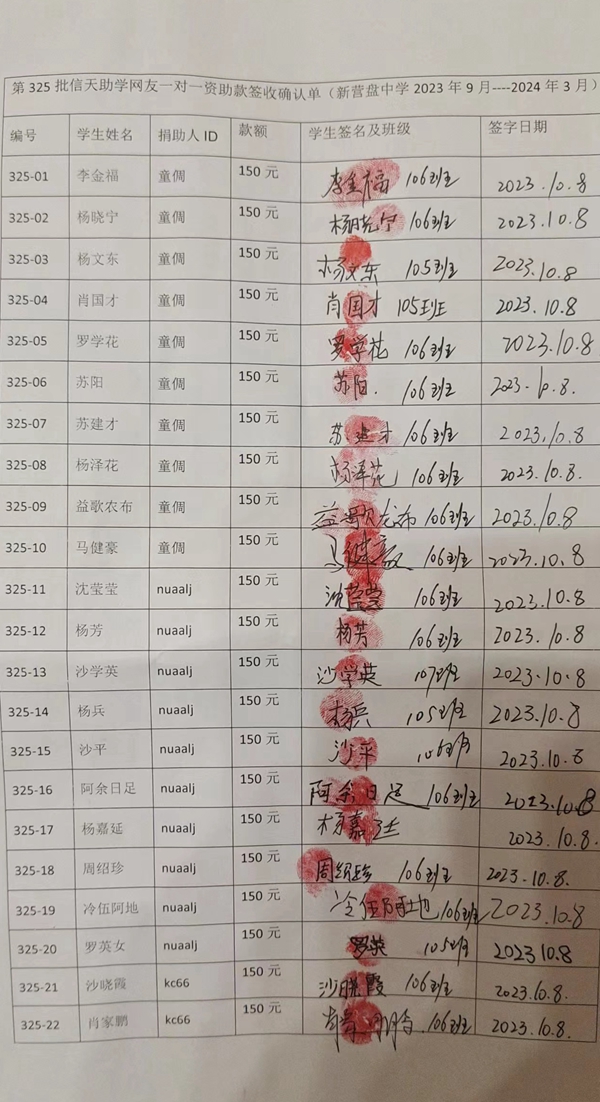 第 325 批信天助学网友一对一资助款签收确认单（新营盘中学 2023 年 9 月----2024 年 3 月）
编号 学生姓名 捐助人 ID 款额 学生签名及班级 签字日期
325-01 李金福 童倜 150 元 李金福 106班 2023.10.8
325-02 杨晓宁 童倜 150 元 杨晓宁 106班 2023.10.8
325-03 杨文东 童倜 150 元 杨文东 105班 2023.10.8
325-04 肖国才 童倜 150 元 肖国才 105班 2023.10.8
325-05 罗学花 童倜 150 元 罗学花 106班 2023.10.8
325-06 苏阳 童倜 150 元 苏阳. 106班 2023.10.8.
325-07 苏建才 童倜 150 元 苏建才 106班 2023.10.8
325-08 杨泽花 童倜 150 元 杨泽花 106班 2023.10.8.
325-09 益歌农布 童倜 150 元 益歌农布 106班 2023.10.8
325-10 马健豪 童倜 150 元 马健豪 106班 2023.10.8
325-11 沈莹莹 nuaalj 150 元 沈莹莹 106班 2023.10.8
325-12 杨芳 nuaalj 150 元 杨芳 106班 2023.10.8
325-13 沙学英 nuaalj 150 元 沙学英 107班 2023.10.8
325-14 杨兵 nuaalj 150 元 杨兵 105班 2023.10.8
325-15 沙平 nuaalj 150 元 沙平 106班 2023.10.8
325-16 阿余日足 nuaalj 150 元 阿余日足 106班 2023.10.8
325-17 杨嘉延 nuaalj 150 元 杨嘉延 2023.10.8.
325-18 周绍珍 nuaalj 150 元 周绍珍 106班 2023.10.8.
325-19 冷伍阿地 nuaalj 150 元 冷伍阿地 106班 2023.10.8
325-20 罗英女 nuaalj 150 元 罗英 105班 2023.10.8
325-21 沙晓霞 kc66 150 元 沙晓霞 106班 2023.10.8.
325-22 肖家鹏 kc66 150 元 肖家鹏 106班 2023.10.8.